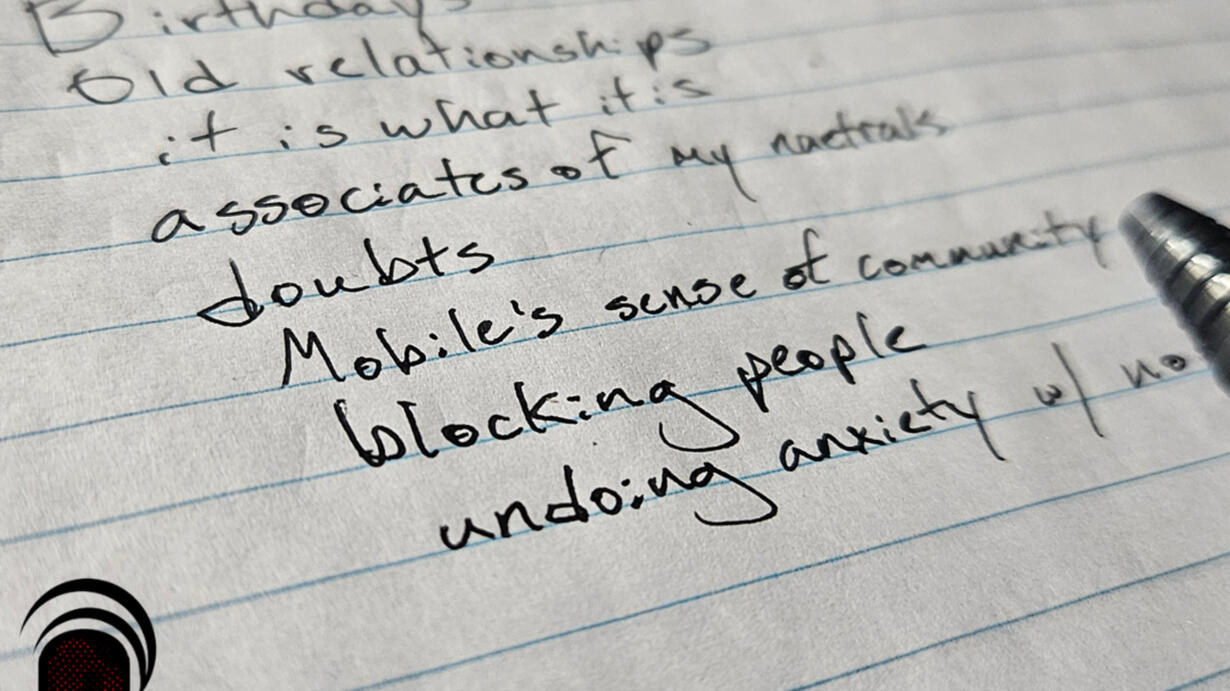 Birthdays
Old relationships
it is what it is
associates of my
doubts
Mobile's sense of community
blocking people
undoing anxiety w/ no